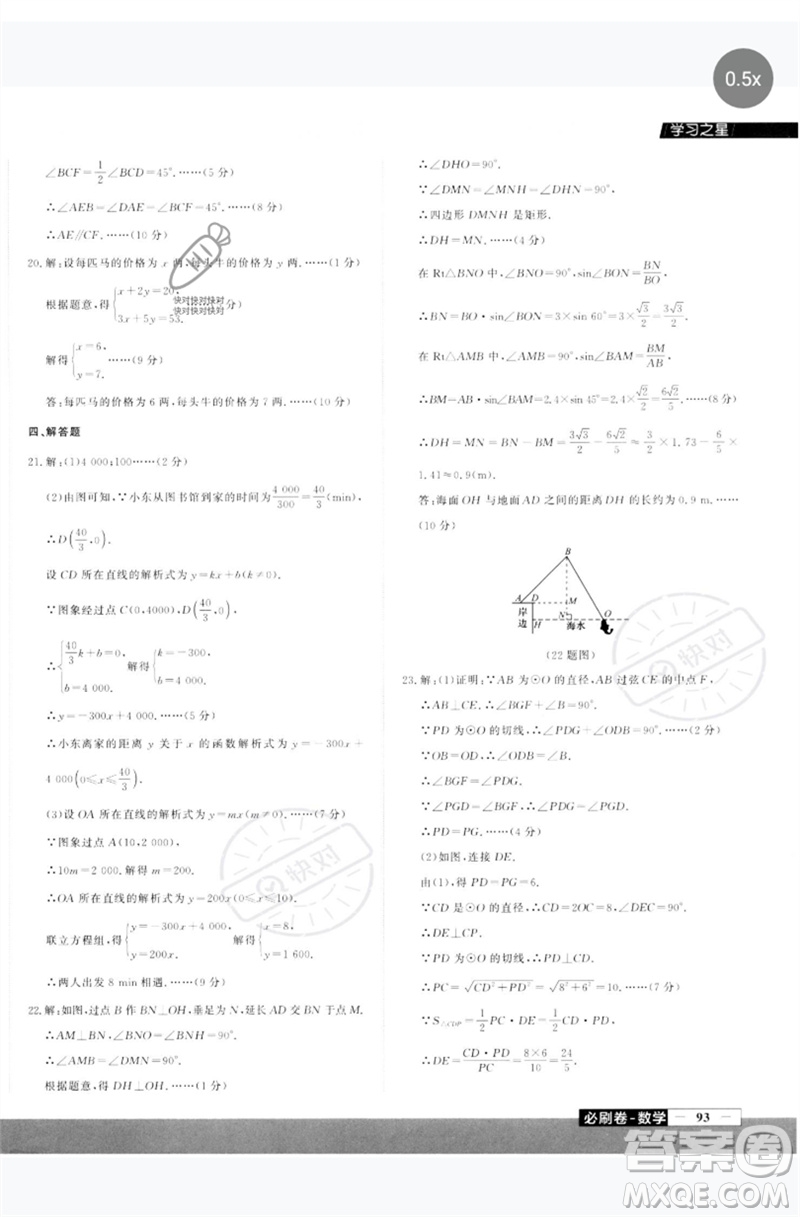 0.5x
学习之星
∠BCF=1/2∠BCD=45°.……(5分)
∴∠AEB=∠DAE=∠BCF=45°.……(8分)
∴AE∥CF.……(10分)
20.解:设每匹马的价格为x两,每头牛的价格为y两.……(1分)
根据题意,得{x+2y=20, 3x+5y=53.
快对快对快对
快对快对快对
分)
解得{x=6, y=7.……(9分)
答:每匹马的价格为6两,每头牛的价格为7两.……(10分)
四、解答题
21.解:(1)4 000;100……(2分)
(2)由图可知,∵小东从图书馆到家的时间为4 000/300=40/3(min),
∴D(40/3,0).
设CD所在直线的解析式为y=kx+b(k≠0).
∵图象经过点C(0,4000),D(40/3,0),
∴{40/3k+b=0, b=4 000.解得{k=-300, b=4 000.
∴y=-300x+4 000.……(5分)
∴小东离家的距离y关于x的函数解析式为y=-300x+
4 000(0≤x≤40/3).……(6分)
(3)设OA所在直线的解析式为y=mx(m≠0).……(7分)
∵图象过点A(10,2 000),
∴10m=2 000.解得m=200.
∴OA所在直线的解析式为y=200x(0≤x≤10).
联立方程组,得{y=-300x+4 000, y=200x.解得{x=8, y=1 600.
∴两人出发8 min相遇.……(9分)
22.解:如图,过点B作BN⊥OH,垂足为N,延长AD交BN于点M.
∴AM⊥BN,∠BNO=∠BNH=90°.
∴∠AMB=∠DMN=90°.
根据题意,得DH⊥OH.……(2分)
∴∠DHO=90°.
∵∠DMN=∠MNH=∠DHN=90°,
∴四边形DMNH是矩形.
∴DH=MN.……(4分)
在Rt△BNO中,∠BNO=90°,sin∠BON=BN/BO,
∴BN=BO·sin∠BON=3×sin 60°=3×√3/2=3√3/2.……(6分)
在Rt△AMB中,∠AMB=90°,sin∠BAM=BM/AB,
∴BM=AB·sin∠BAM=2.4×sin 45°=2.4×√2/2=6√2/5.……(8分)
∴DH=MN=BN-BM=3√3/2-6√2/5≈3/2×1.73-6/5×
1.41≈0.9(m).
答:海面OH与地面AD之间的距离DH的长约为0.9 m.……
(10分)
B
A D M
岸边
H N 海水 O
(22题图)
23.解:(1)证明:∵AB为⊙O的直径,AB过弦CE的中点F,
∴AB⊥CE.∴∠BGF+∠B=90°.
∵PD为⊙O的切线,∴∠PDG+∠ODB=90°.……(2分)
∵OB=OD,∴∠B=∠ODB.
∴∠BGF=∠PDG.
∵∠PGD=∠BGF,∴∠PGD=∠PDG.
∴PD=PG.……(4分)
(2)如图,连接DE.
由(1),得PD=PG=6.
∵CD是⊙O的直径,CD=2CO=8,∠DEC=90°.
∴DE⊥CP.
∵PD为⊙O的切线,∴PD⊥CD.
∴PC=√CD²+PD²=√8²+6²=10.……(7分)
∵S△CDP=1/2PC·DE=1/2CD·PD,
∴DE=CD·PD/PC=8×6/10=24/5.……(8分)
必刷卷-数学 — 93 —
快对
快对
答案圈
MXQE.COM